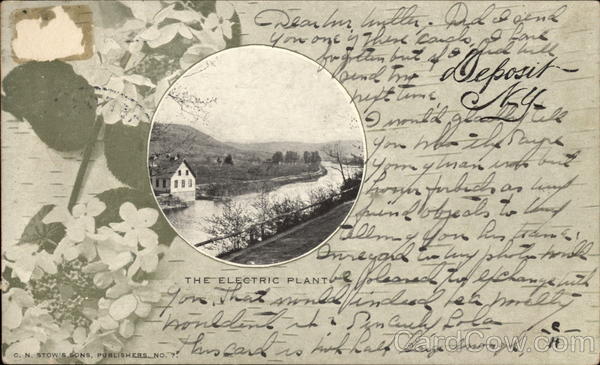 Dear Mr. Miller. Did I send
you one of these cards, I have
forgotten but if I did will
send two
next time.
Deposit
N.Y.
I would gladly tell
you who the
young man was but
honor forbids as my
friend objects to my
telling you his name.
In regard to my photo would
be pleased to exchange with
you, that would indeed be a novelty
wouldn't it? Sincerely Lola
This card is not half large enough
THE ELECTRIC PLANT
C. N. STOW'S SONS, PUBLISHERS, NO. 7.
CardCow.com